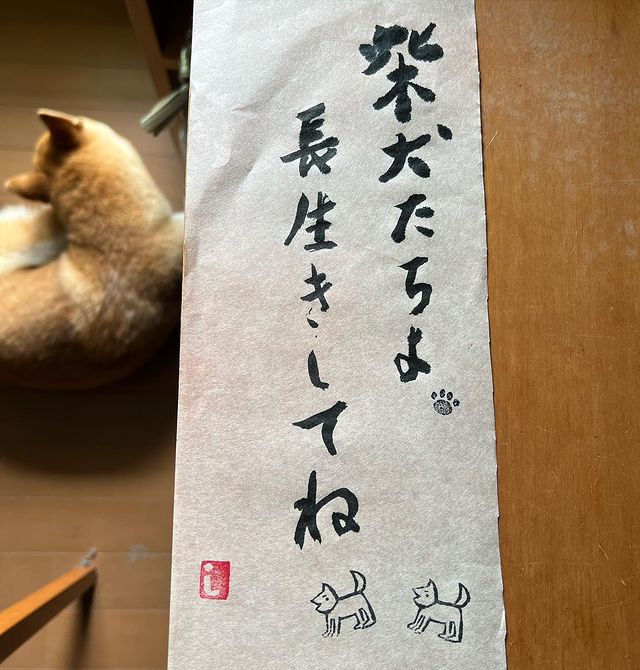 柴犬たちよ
長生きしてね
し